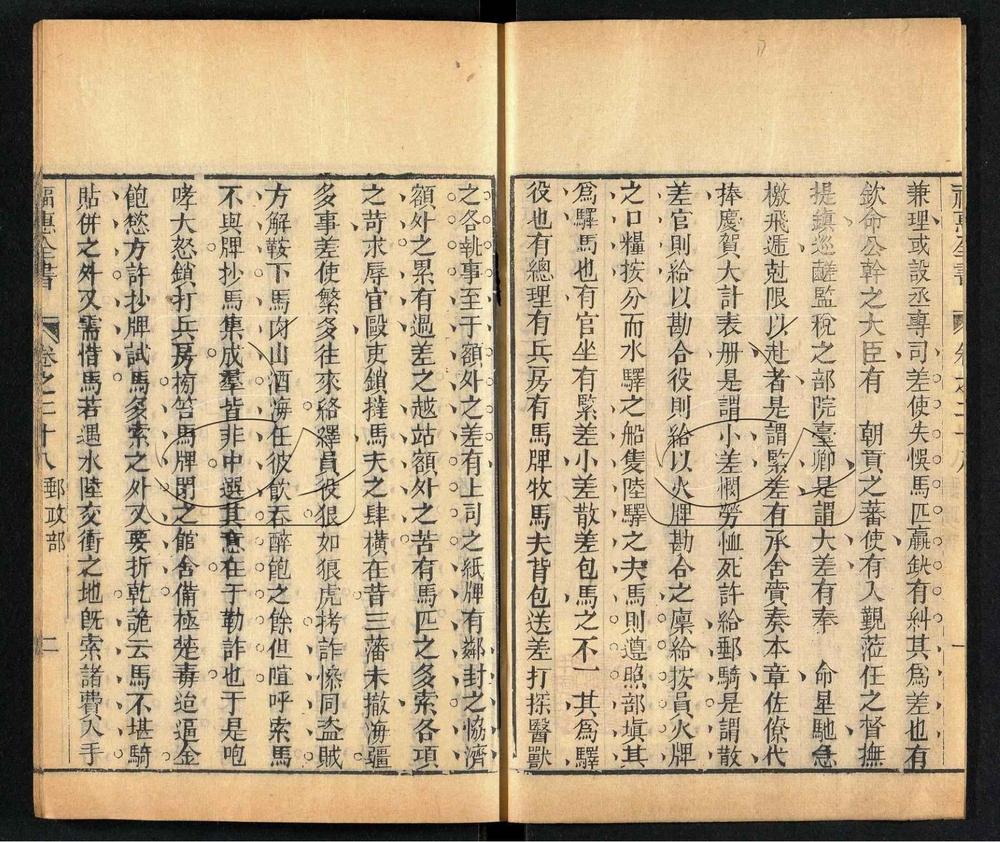 兼理或設丞專司差使失悞馬匹羸缺有糾其爲差也有
欽命公幹之大臣有 朝貢之蕃使有入覲蒞任之督撫
提鎮巡鹺監稅之部院臺卿是謂大差有奉 命星馳急
檄飛遞尅限以赴者是謂緊差有承舍賫奏本章佐僚代
捧慶賀大計表册是謂小差憫勞恤死許給郵騎是謂散
差官則給以勘合役則給以火牌勘合之廩給按員火牌
之口糧按分而水驛之船隻陸驛之夫馬則遵照部塡其
爲驛馬也有官坐有緊差小差散差包馬之不一其爲驛
役也有總理有兵房有馬牌牧馬夫背包送差打探醫獸
之各執事至于額外之差有上司之紙牌有鄰封之恊濟
額外之累有過差之越站額外之苦有馬匹之多索各項
之苛求辱官毆吏鎖撻馬夫之肆橫在昔三藩未撤海疆
多事差使繁多往來絡繹員役狠如狼虎拷詐慘同盗賊
方解鞍下馬肉山酒海任彼飮吞醉飽之餘但喧呼索馬
不與牌抄馬集成羣皆非中選其意在于勒詐也于是咆
哮大怒鎖打兵房搒笞馬牌閉之館舍備極楚毒迨逼金
飽慾方許抄牌試馬多索之外又要折乾詭云馬不堪騎
貼併之外又需借馬若遇水陸交衝之地旣索諸費入手
福惠全書 卷之二十八 郵政部 二